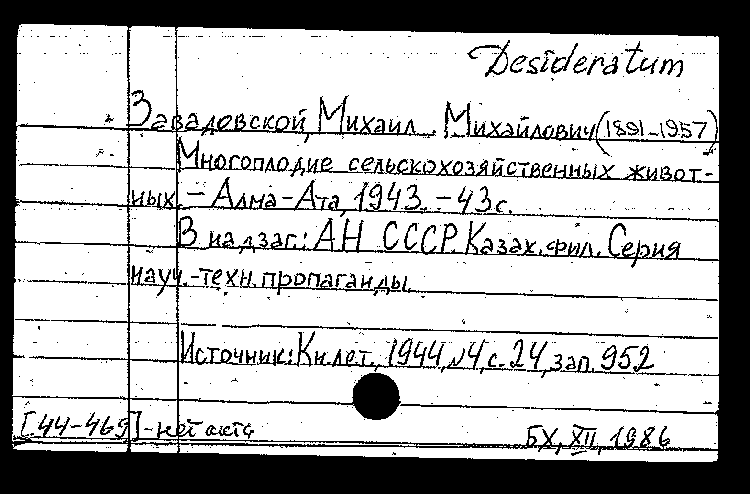 Desideratum
Завадовской, Михаил Михайлович (1891-1957)
Многоплодие сельскохозяйственных живот-
ных. - Алма-Ата, 1943. - 43 с.
В надзаг.: АН СССР. Казах. фил. Серия
науч.-техн. пропаганды.
Источник: Кн. лет., 1944, №4, с. 24, зап. 952
[44-469] - нет акта
БХ, XII, 1986